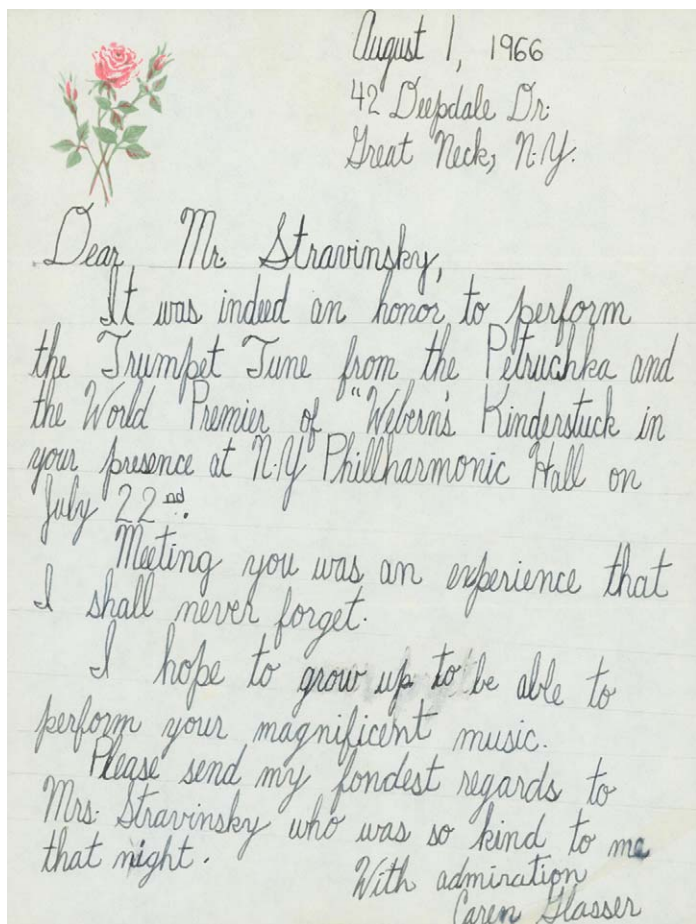 August 1, 1966
42 Deepdale Dr.
Great Neck, N.Y.
Dear Mr. Stravinsky,
It was indeed an honor to perform
the Trumpet Tune from the Petruchka and
the World Premier of "Webern's Kinderstuck in
your presence at N.Y Phillharmonic Hall on
July 22nd.
Meeting you was an experience that
I shall never forget.
I hope to grow up to be able to
perform your magnificent music.
Please send my fondest regards to
Mrs. Stravinsky who was so kind to me
that night.
With admiration
Caren Glasser